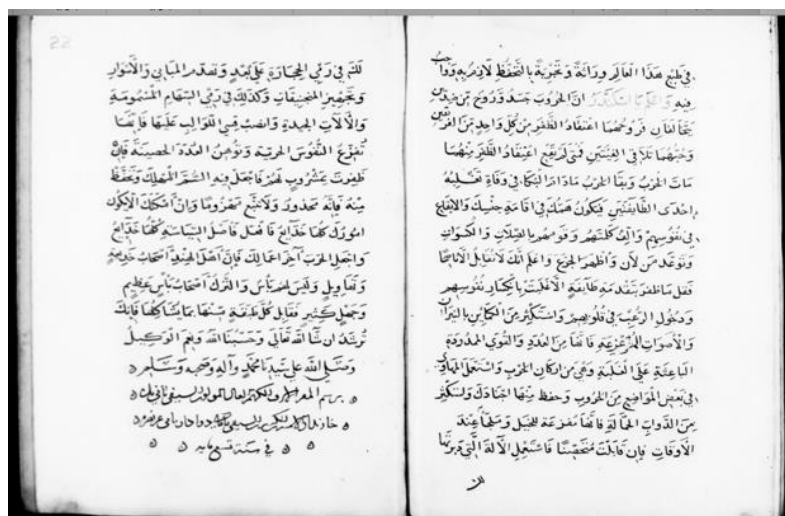 في طبع هذا العالم وداثة وتجربة بالتحفظ لازم به وواجب
فيه واعلم يا اسكندر ان الحروب جسد وروح من ضدين
يتخالفان فروحهما اعتقاد الظفر من كل واحد من الفرقتين
وجثتهما تلاقي الفيتين فمتى لم يقع اعتقاد الظفر منهما
مات الحرب وبقا الحرب مادام البنكا في وفاة تغلبه
احدى الطايفتين فيكون همتك في اقامة جنسك والايقاع
في نفوسهم والف كلمتهم وقومهم بالصلات والكسوات
وتوعد من لان واظهر الجزع واعلم انك لا تقابل الا ناسا
فقل ما ظفر بتقدمه طايفة الا غلبت بانكسار نفوسهم
ودخول الرعب في قلوبهم واستكثر من الكماين بالنيران
والاصوات المزعزعة فانها من العدد والقوي الممدودة
الباعثة على الغلبة وهي من اركان الحرب واستعمل المهاوي
في بعض المواضع من الحروب وحفظ منها اجنادك ولستكثر
من الدواب الحمالة فانها مفزعة للخيل وملجأ عند
الاوقات فان قابلت متحصنا فاستعمل الالة التي دبرتها
لك
لك في رمي الحجارة على بعد وتهدم المباني والاسوار
وتجهيز المنجنيقات وكذلك في رمي السهام المسمومة
والالات الجيدة وانصب قسي اللوالب عليها فانها
تفزع النفوس الحربية وتوهن العدة الحصينة فان
ظفرت بمشروب لهم فاجعل فيه السم المهلك وتحفظ
منه فانه محذور ولا تتبع مهزوما وان امكنك ان يكون
امورك كلها خدايع فافعل فاصل السياسة كلها خدايع
واجعل الحرب اخر اعمالك فان اهل الهند اصحاب خديعة
وتهاويل وليس لهم بأس والترك اصحاب بأس عظيم
وجهل كثير فقابل كل طايفة منها بما يشاكلها فانك
ترشد ان شا الله تعالى وحسبنا الله ونعم الوكيل
وصلى الله على سيدنا محمد واله وصحبه وسلم
في سنة تسع مايه